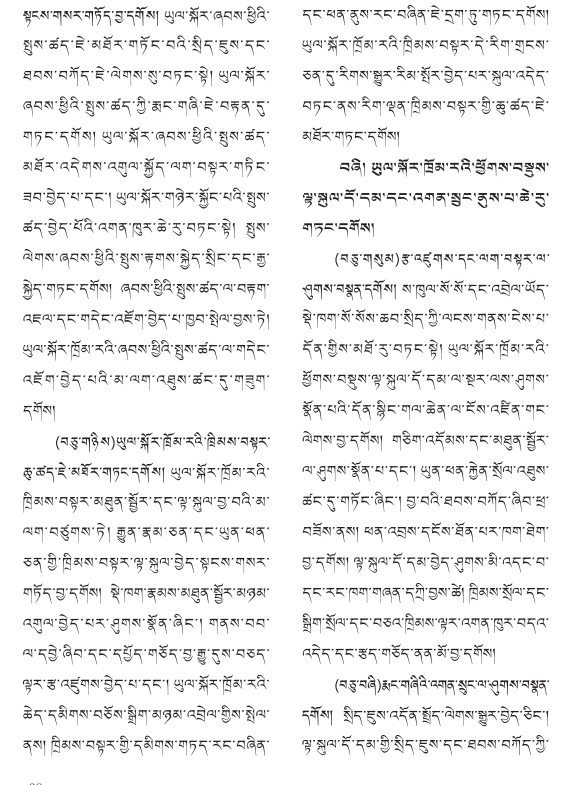 སྟངས་གསར་གཏོད་བྱ་དགོས། ཡུལ་སྐོར་ཞབས་ཕྱིའི་
སྤུས་ཚད་ཇེ་མཐོར་གཏོང་བའི་སྲིད་ཇུས་དང་
ཐབས་བཀོད་ཇེ་ལེགས་སུ་བཏང་སྟེ། ཡུལ་སྐོར་
ཞབས་ཕྱིའི་སྤུས་ཚད་ཀྱི་རྨང་གཞི་ཇེ་བརྟན་དུ་
གཏང་དགོས། ཡུལ་སྐོར་ཞབས་ཕྱིའི་སྤུས་ཚད་
མཐོར་འདེགས་འགུལ་སྐྱོད་ལག་བསྟར་གཏིང་
ཟབ་བྱེད་པ་དང་། ཡུལ་སྐོར་གཉེར་སྐྱོང་པའི་སྤུས་
ཚད་བྱེད་པོའི་འགན་ཁུར་ཆེ་རུ་བཏང་སྟེ། སྤུས་
ལེགས་ཞབས་ཕྱིའི་སྤུས་རྟགས་སྐྱེད་སྲིང་དང་རྒྱ་
སྐྱེད་གཏང་དགོས། ཞབས་ཕྱིའི་སྤུས་ཚད་ལ་བརྟག་
འཇལ་དང་གདེང་འཇོག་བྱེད་པ་ཁྱབ་སྤེལ་བྱས་ཏེ།
ཡུལ་སྐོར་ཁྲོམ་རའི་ཞབས་ཕྱིའི་སྤུས་ཚད་ལ་གདེང་
འཇོག་བྱེད་པའི་མ་ལག་འཐུས་ཚང་དུ་གཟུག་
དགོས།
(བཅུ་གཉིས)ཡུལ་སྐོར་ཁྲོམ་རའི་ཁྲིམས་བསྟར་
ཆུ་ཚད་ཇེ་མཐོར་གཏང་དགོས། ཡུལ་སྐོར་ཁྲོམ་རའི་
ཁྲིམས་བསྟར་མཐུན་སྦྱོར་དང་ལྟ་སྐུལ་བྱ་བའི་མ་
ལག་བཙུགས་ཏེ། རྒྱུན་རྣམ་ཅན་དང་ཡུན་ཕན་
ཅན་གྱི་ཁྲིམས་བསྟར་ལྟ་སྐུལ་བྱེད་སྟངས་གསར་
གཏོད་བྱ་དགོས། སྡེ་ཁག་རྣམས་མཐུན་སྦྱོར་མཉམ་
འགུལ་བྱེད་པར་ཤུགས་སྣོན་ཞིང་། གནས་བབ་
ལ་དབྱེ་ཞིབ་དང་དཔྱོད་གཅོད་བྱ་རྒྱུ་དུས་བཅད་
ལྟར་རྩ་འཛུགས་བྱེད་པ་དང་། ཡུལ་སྐོར་ཁྲོམ་རའི་
ཆེད་དམིགས་བཅོས་སྒྲིག་མཉམ་འབྲེལ་གྱིས་སྤེལ་
ནས། ཁྲིམས་བསྟར་གྱི་དམིགས་གཏད་རང་བཞིན་
དང་ཕན་ནུས་རང་བཞིན་ཇེ་དྲག་ཏུ་གཏང་དགོས།
ཡུལ་སྐོར་ཁྲོམ་རའི་ཁྲིམས་བསྟར་དེ་རིག་གྲངས་
ཅན་དུ་རིགས་སྒྱུར་རིམ་སྤོར་བྱེད་པར་སྐུལ་འདེད་
བཏང་ནས་རིག་ལྡན་ཁྲིམས་བསྟར་གྱི་ཆུ་ཚད་ཇེ་
མཐོར་གཏང་དགོས།
བཞི། ཡུལ་སྐོར་ཁྲོམ་རའི་ཕྱོགས་བསྡུས་
ལྟ་སྐུལ་དོ་དམ་དང་འགན་སྲུང་ནུས་པ་ཆེ་རུ་
གཏང་དགོས།
(བཅུ་གསུམ)རྩ་འཛུགས་དང་ལག་བསྟར་ལ་
ཤུགས་བསྣན་དགོས། ས་ཁུལ་སོ་སོ་དང་འབྲེལ་ཡོད་
སྡེ་ཁག་སོ་སོས་ཆབ་སྲིད་ཀྱི་ལངས་གནས་ངེས་པ་
དོན་གྱིས་མཐོ་རུ་བཏང་སྟེ། ཡུལ་སྐོར་ཁྲོམ་རའི་
ཕྱོགས་བསྡུས་ལྟ་སྐུལ་དོ་དམ་ལ་སྔར་ལས་ཤུགས་
སྣོན་པའི་དོན་སྙིང་གལ་ཆེན་ལ་ངོས་འཛིན་གང་
ལེགས་བྱ་དགོས། གཅིག་འདོམས་དང་མཐུན་སྦྱོར་
ལ་ཤུགས་སྣོན་པ་དང་། ཡུན་ཕན་རྐྱེན་སྲོལ་འཐུས་
ཚང་དུ་གཏོང་ཞིང་། བྱ་བའི་ཐབས་བཀོད་ཞིབ་ཕྲ་
བཟོས་ནས། ཕན་འབྲས་དངོས་ཐོན་པར་ཁག་ཐེག་
བྱ་དགོས། ལྟ་སྐུལ་དོ་དམ་བྱེད་ཤུགས་མི་འདང་བ་
དང་རང་ཁག་གཞན་དཀྲི་བྱས་ཚེ། ཁྲིམས་སྲོལ་དང་
སྒྲིག་སྲོལ་དང་བཅའ་ཁྲིམས་ལྟར་འགན་ཁུར་བདའ་
འདེད་དང་རྩད་གཅོད་ནན་མོ་བྱ་དགོས།
(བཅུ་བཞི)རྨང་གཞིའི་འགན་སྲུང་ལ་ཤུགས་བསྣན་
དགོས། སྲིད་ཇུས་འདོན་སྤྲོད་ལེགས་སྒྱུར་བྱེད་ཅིང་།
ལྟ་སྐུལ་དོ་དམ་གྱི་སྲིད་ཇུས་དང་ཐབས་བཀོད་ཀྱི་